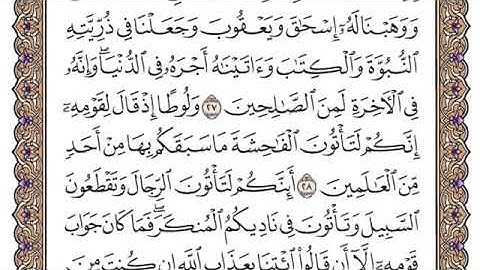 وَوَهَبْنَا لَهُۥٓ إِسْحَٰقَ وَيَعْقُوبَ وَجَعَلْنَا فِى ذُرِّيَّتِهِ
ٱلنُّبُوَّةَ وَٱلْكِتَٰبَ وَءَاتَيْنَٰهُ أَجْرَهُۥ فِى ٱلدُّنْيَا ۖ وَإِنَّهُۥ
فِى ٱلْءَاخِرَةِ لَمِنَ ٱلصَّٰلِحِينَ ٢٧ وَلُوطًا إِذْ قَالَ لِقَوْمِهِۦٓ
إِنَّكُمْ لَتَأْتُونَ ٱلْفَٰحِشَةَ مَا سَبَقَكُم بِهَا مِنْ أَحَدٍ
مِّنَ ٱلْعَٰلَمِينَ ٢٨ أَئِنَّكُمْ لَتَأْتُونَ ٱلرِّجَالَ وَتَقْطَعُونَ
ٱلسَّبِيلَ وَتَأْتُونَ فِى نَادِيكُمُ ٱلْمُنكَرَ ۖ فَمَا كَانَ جَوَابَ
قَوْمِهِۦٓ إِلَّآ أَن قَالُوا۟ ٱئْتِنَا بِعَذَابِ ٱللَّهِ إِن كُنتَ مِنَ